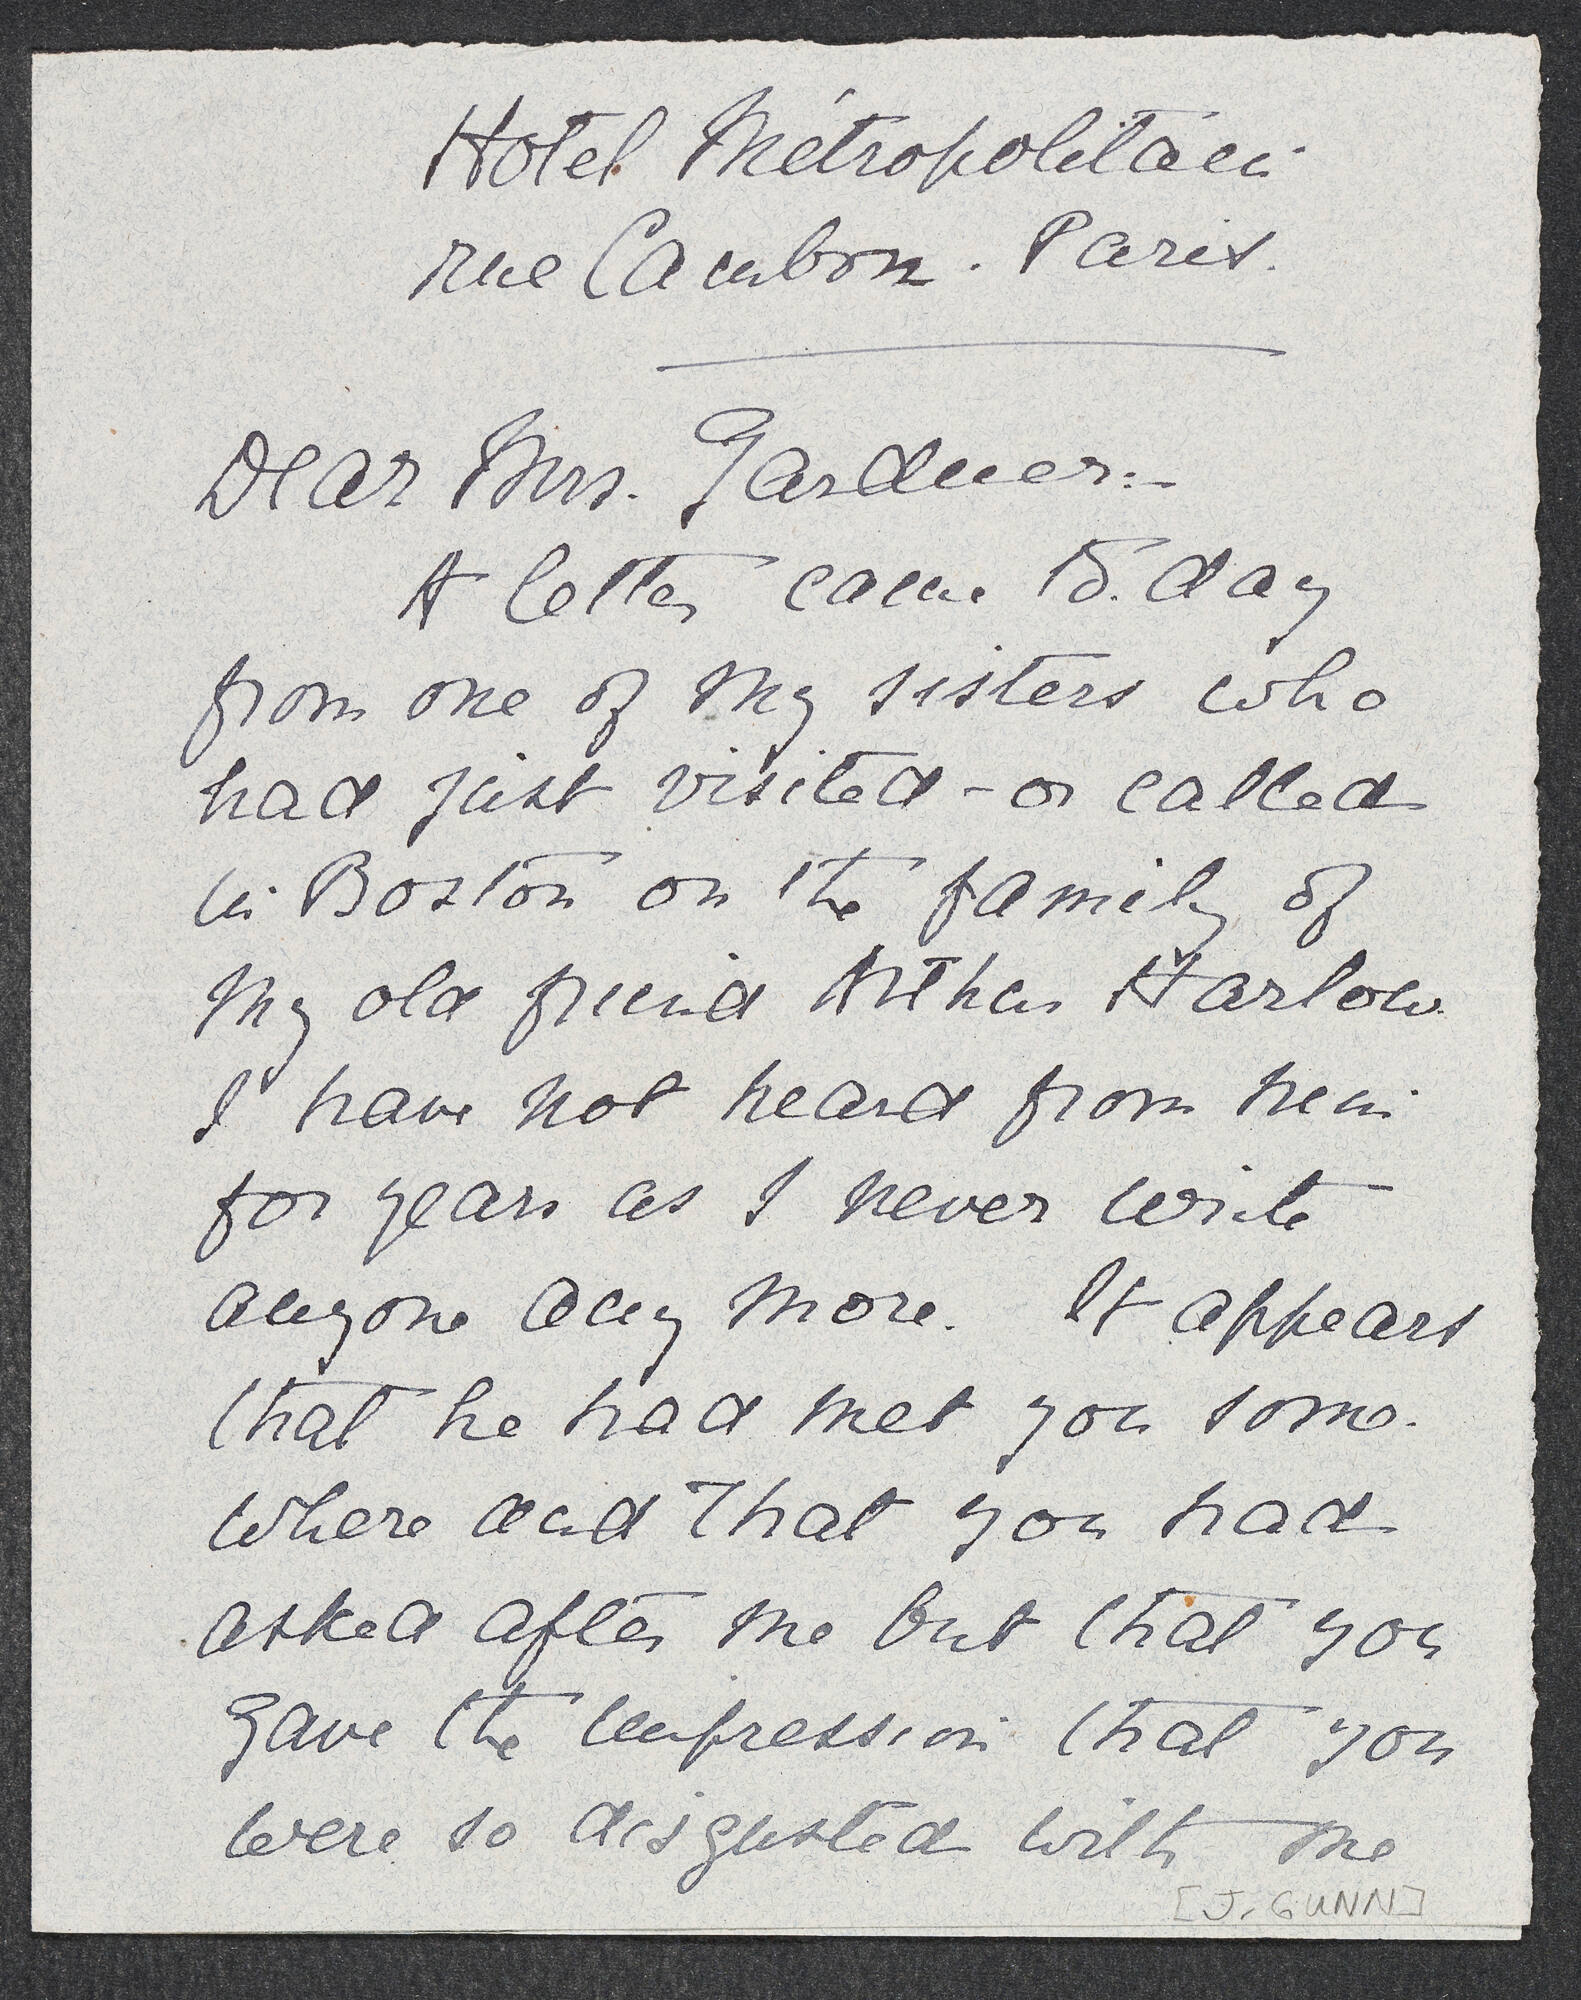 Hotel Métropolitain
rue Cambon. Paris.
Dear Mrs. Gardner:-
A letter came to.day
from one of my sisters who
had just visited - or called
in Boston on the family of
my old friend Arthur Harlow.
I have not heard from him
for years as I never write
anyone any more. It appears
that he had met you some-
where and that you had
asked after me but that you
gave the impression that you
were so disgusted with me
[J. GUNN]